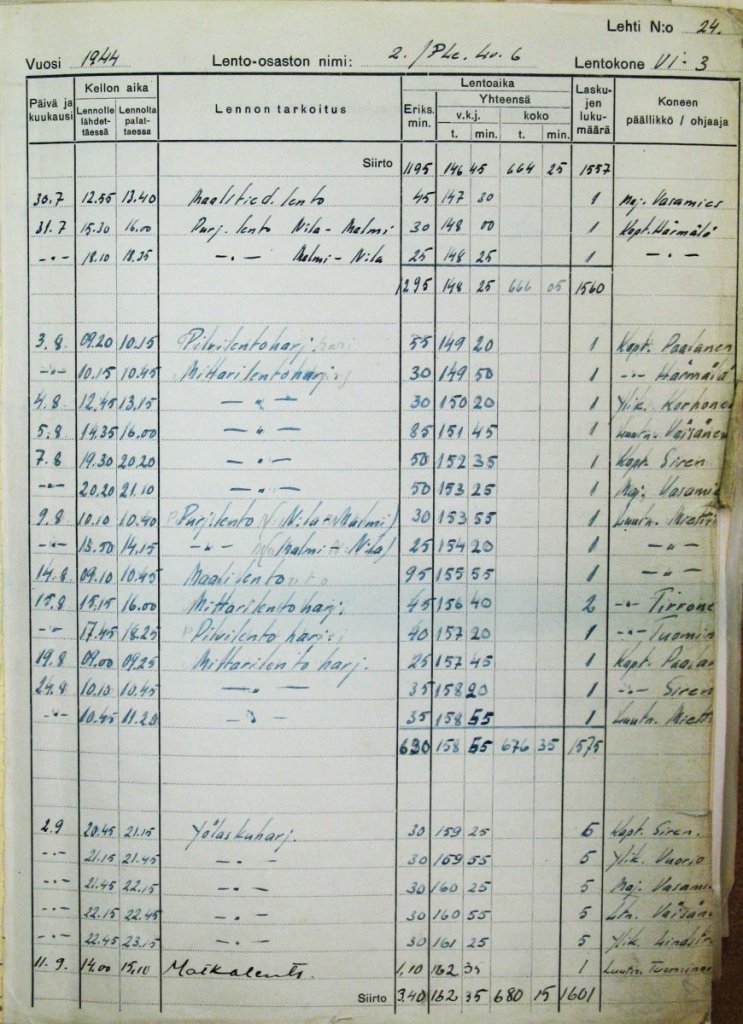 Lehti N:o 24.
Vuosi 1944 Lento-osaston nimi: 2./PLe.Lv.6 Lentokone VI-3
Päivä ja kuukausi Kellon aika Lennolle lähdettäessä Lennolta palattaessa Lennon tarkoitus Lentoaika Eriks. min. Yhteensä v.k.j. t. min. koko t. min. Laskujen lukumäärä Koneen päällikkö / ohjaaja
Siirto 1195 146 45 664 25 1557
30.7 12.55 13.40 Maalstied. lento 45 147 30 1 Maj. Vasamies
31.7 15.30 16.00 Purj. lento Nila - Malmi 30 148 00 1 Kapt. Härmälä
-"- 18.10 18.35 -"- Malmi - Nila 25 148 25 1 -"-
1295 148 25 666 05 1560
3.8. 09.20 10.15 Pilvilentoharj. 55 149 20 1 Kapt. Paalanen
-"- 10.15 10.45 Mittarilentoharj. 30 149 50 1 -"- Härmälä
4.8 12.45 13.15 -"- 30 150 20 1 Ylik. Korhonen
5.8 14.35 16.00 -"- 85 151 45 1 Luutn. Väisänen
7.8 19.30 20.20 -"- 50 152 35 1 Kapt. Siren
-"- 20.20 21.10 -"- 50 153 25 1 Maj. Vasamie
9.8 10.10 10.40 Purj. lento (Nila - Malmi) 30 153 55 1 Luutn. Mietti
-"- 13.50 14.15 -"- (Malmi - Nila) 25 154 20 1 -"-
14.8 09.10 10.45 Maalilento 95 155 55 1 -"-
15.8 15.15 16.00 Mittarilentoharj. 45 156 40 2 -"- Tirrone
-"- 17.45 18.25 Pilvilento harj. 40 157 20 1 -"- Tuomin
19.8 09.00 09.25 Mittarilento harj. 25 157 45 1 Kapt. Paalan
24.8 10.10 10.45 -"- 35 158 20 1 -"- Siren
-"- 10.45 11.20 -"- 35 158 55 1 Luutn. Mietti
630 158 55 676 35 1575
2.9 20.45 21.15 Yölaskuharj. 30 159 25 5 Kapt. Siren.
-"- 21.15 21.45 -"- 30 159 55 5 Ylik. Vuorio
-"- 21.45 22.15 -"- 30 160 25 5 Maj. Vasami
-"- 22.15 22.45 -"- 30 160 55 5 Ltn. Väisäne
-"- 22.45 23.15 -"- 30 161 25 5 Ylik. Lindstr
11.9. 14.00 15.10 Matkalento. 1.10 162 35 1 Luutn. Tuomine
Siirto 3.40 162 35 680 15 1601